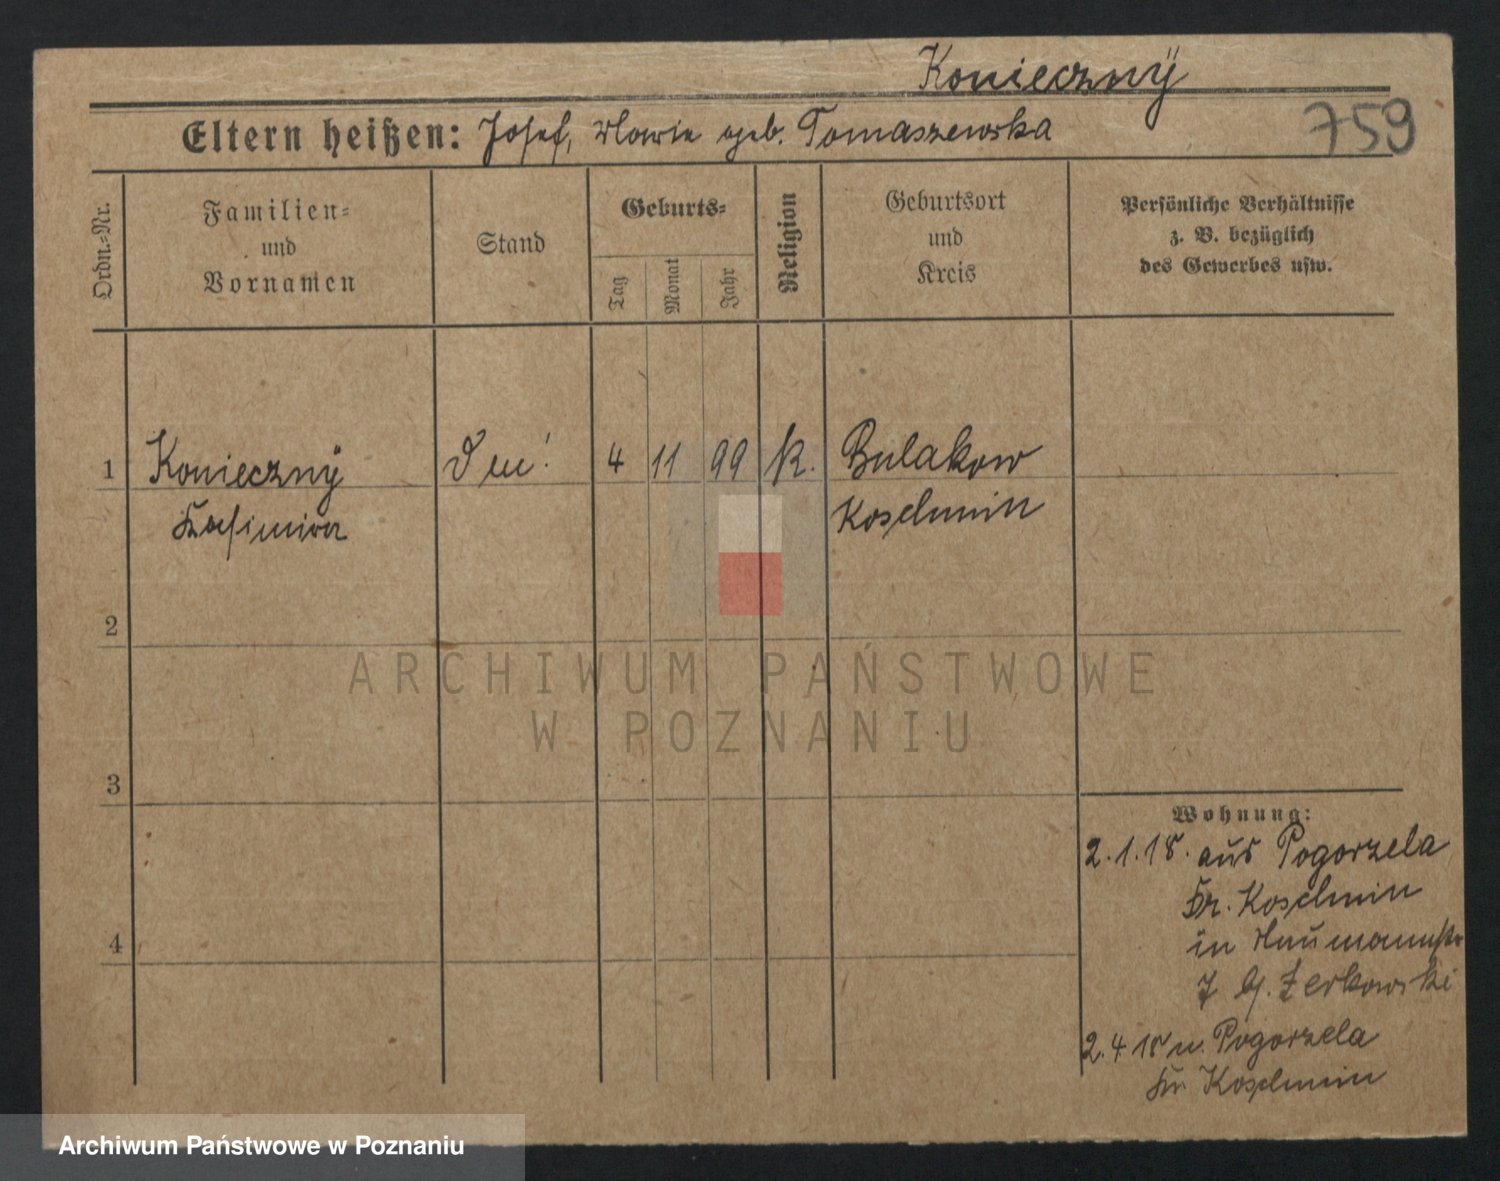 Konieczny
759
Eltern heißen: Josef, Marie geb. Tomaszewska
Ordn.=Nr.
Familien=
und
Vornamen
Stand
Geburts=
Tag
Monat
Jahr
Religion
Geburtsort
und
Kreis
Persönliche Verhältnisse
z. B. bezüglich
des Gewerbes usw.
1 Konieczny 4 11 99 k. Bulakow
Kasimira Koschmin
2
3
4
Wohnung:
2.1.18. aus Pogorzela
Kr. Koschmin
in Naumannstr
7 b. Zerkowski
2.4 18 n. Pogorzela
Kr Koschmin
ARCHIWUM PAŃSTWOWE
W POZNANIU
Archiwum Państwowe w Poznaniu